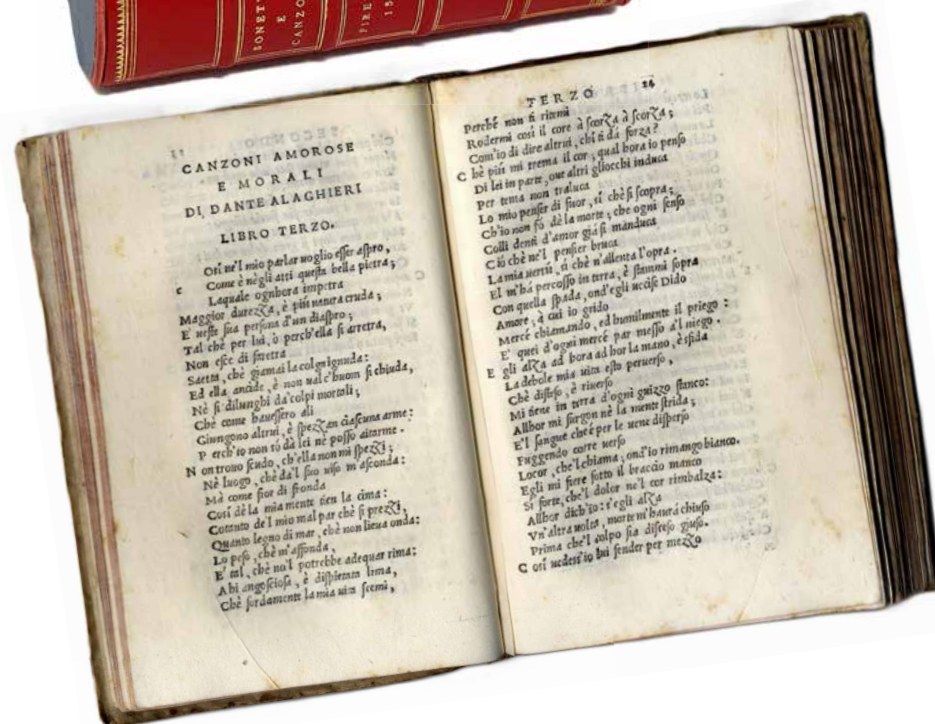 SONET
E
CANZO
FIRE
15
CANZONI AMOROSE
E MORALI
DI DANTE ALAGHIERI
LIBRO TERZO.
Osi ne'l mio parlar uoglio esser aspro,
c
Come è ne gli atti questa bella pietra;
Laquale ognhora impetra
Maggior durezza, è più natura cruda;
E' ueste sua persona d'un diaspro;
Tal chè per lui, ò perch'ella si arretra,
Non esce di faretra
Saetta, chè giamai la colga ignuda:
Ed ella ancide, è non ual c'huom si chiuda,
Nè si dilunghi da colpi mortali;
Chè come hauessero ali
Giungono altrui, è spezzan ciascuna arme:
Perch'io non sò dà lei nè posso aitarme.
Non trouo scudo, ch'ella non mi spezzi;
Nè luogo, chè da'l suo uiso m'asconda:
Mà come fior di fronda
Cosi dè la mia mente tien la cima:
Cotanto de'l mio mal par chè si prezzi,
Quanto legno di mar, chè non lieua onda:
Lo peso, chè m'affonda,
E' tal, chè no'l potrebbe adequar rima:
Ahi angosciosa, è dispietata lima,
Chè sordamente la mia uita scemi,
TERZO
26
Perché non ti ritemi
Rodermi così il core à scorza à scorza;
Com'io di dire altrui, chi ti dà forza?
Chè più mi trema il cor, qual hora io penso
Di lei in parte, oue altri gliocchi induca
Per tema non traluca
Lo mio penser di fuor, sì chè si scopra;
Ch'io non fò dè la morte; che ogni senso
Colli denti d'amor già si manduca
Ciò chè ne'l pensier bruca
La mia uertù, sì chè n'allenta l'opra.
El m'hà percosso in terra, è stammi sopra
Con quella spada, ond'egli uccise Dido
Amore, à cui io grido
Mercé chiamando, ed humilmente il priego:
E' quei d'ogni mercé par messo a'l niego.
Egli alza ad hora ad hor la mano, è sfida
La debole mia uita esto peruerso,
Chè disteso, è riuerso
Mi tiene in terra d'ogni guizzo stanco:
Allhor mi surgon nè la mente strida;
E'l sangue che è per le uene disperso
Fuggendo corre uerso
Locor, che'l chiama; ond'io rimango bianco.
Egli mi fiere sotto il braccio manco
Si forte, che'l dolor ne'l cor rimbalza:
Allhor dich'io: s'egli alza
Vn'altra uolta, morte m'haurà chiuso
Prima che'l colpo sia disceso giuso.
Cosi uedess'io lui fender per mezzo